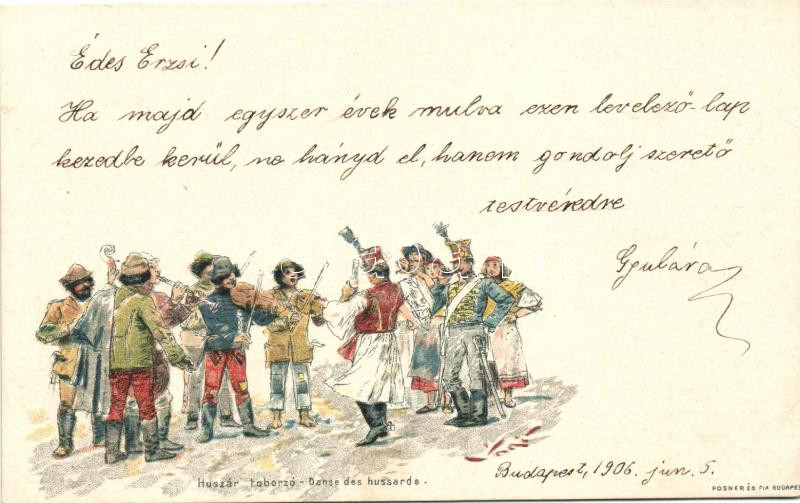 Édes Erzsi!
Ha majd egyszer évek mulva ezen levelező-lap
kezedbe kerül, ne hányd el, hanem gondolj szerető
testvéredre
Gyulára
Huszár toborzó - Danse des hussards.
Budapest, 1906. jun. 5.
POSNER ÉS FIA BUDAPES